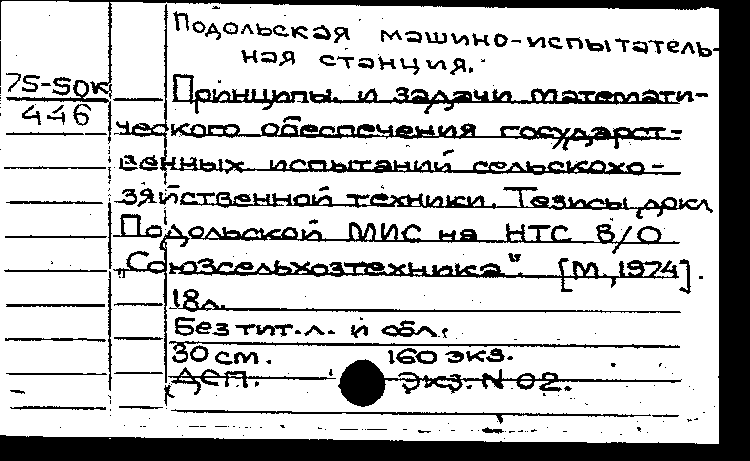 Подольская машино-испытатель-
ная станция.
75-50к
446
Принципы и задачи математи-
ческого обеспечения государст-
венных испытаний сельскохо-
зяйственной техники. Тезисы докл.
Подольской МИС на НТС В/О
„Союзсельхозтехника". [М., 1974].
18л.
Без тит. л. и обл.
30 см. 160 экз.
Деп. Экз. N 02.